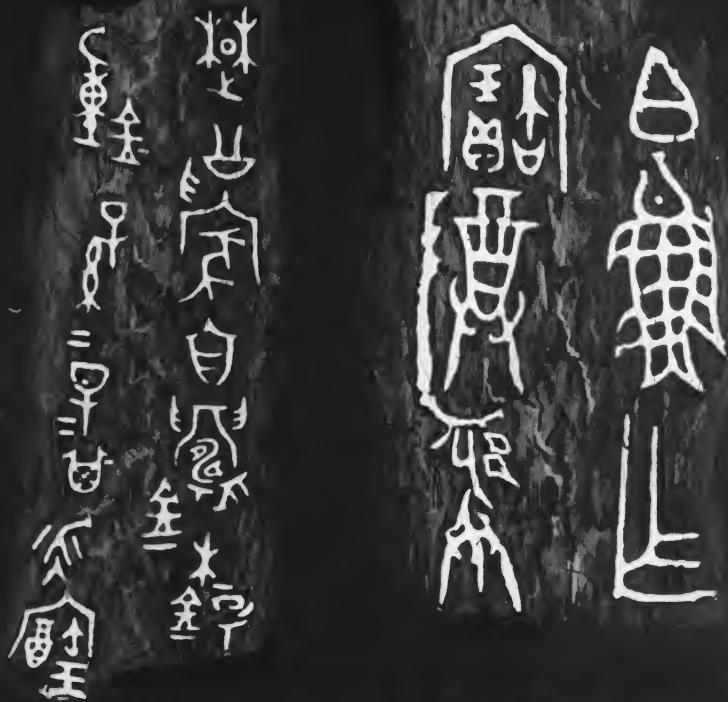 白魚乍
寶尊彝
楚公豪自鑄鍚
鐘孫=子=其永寶